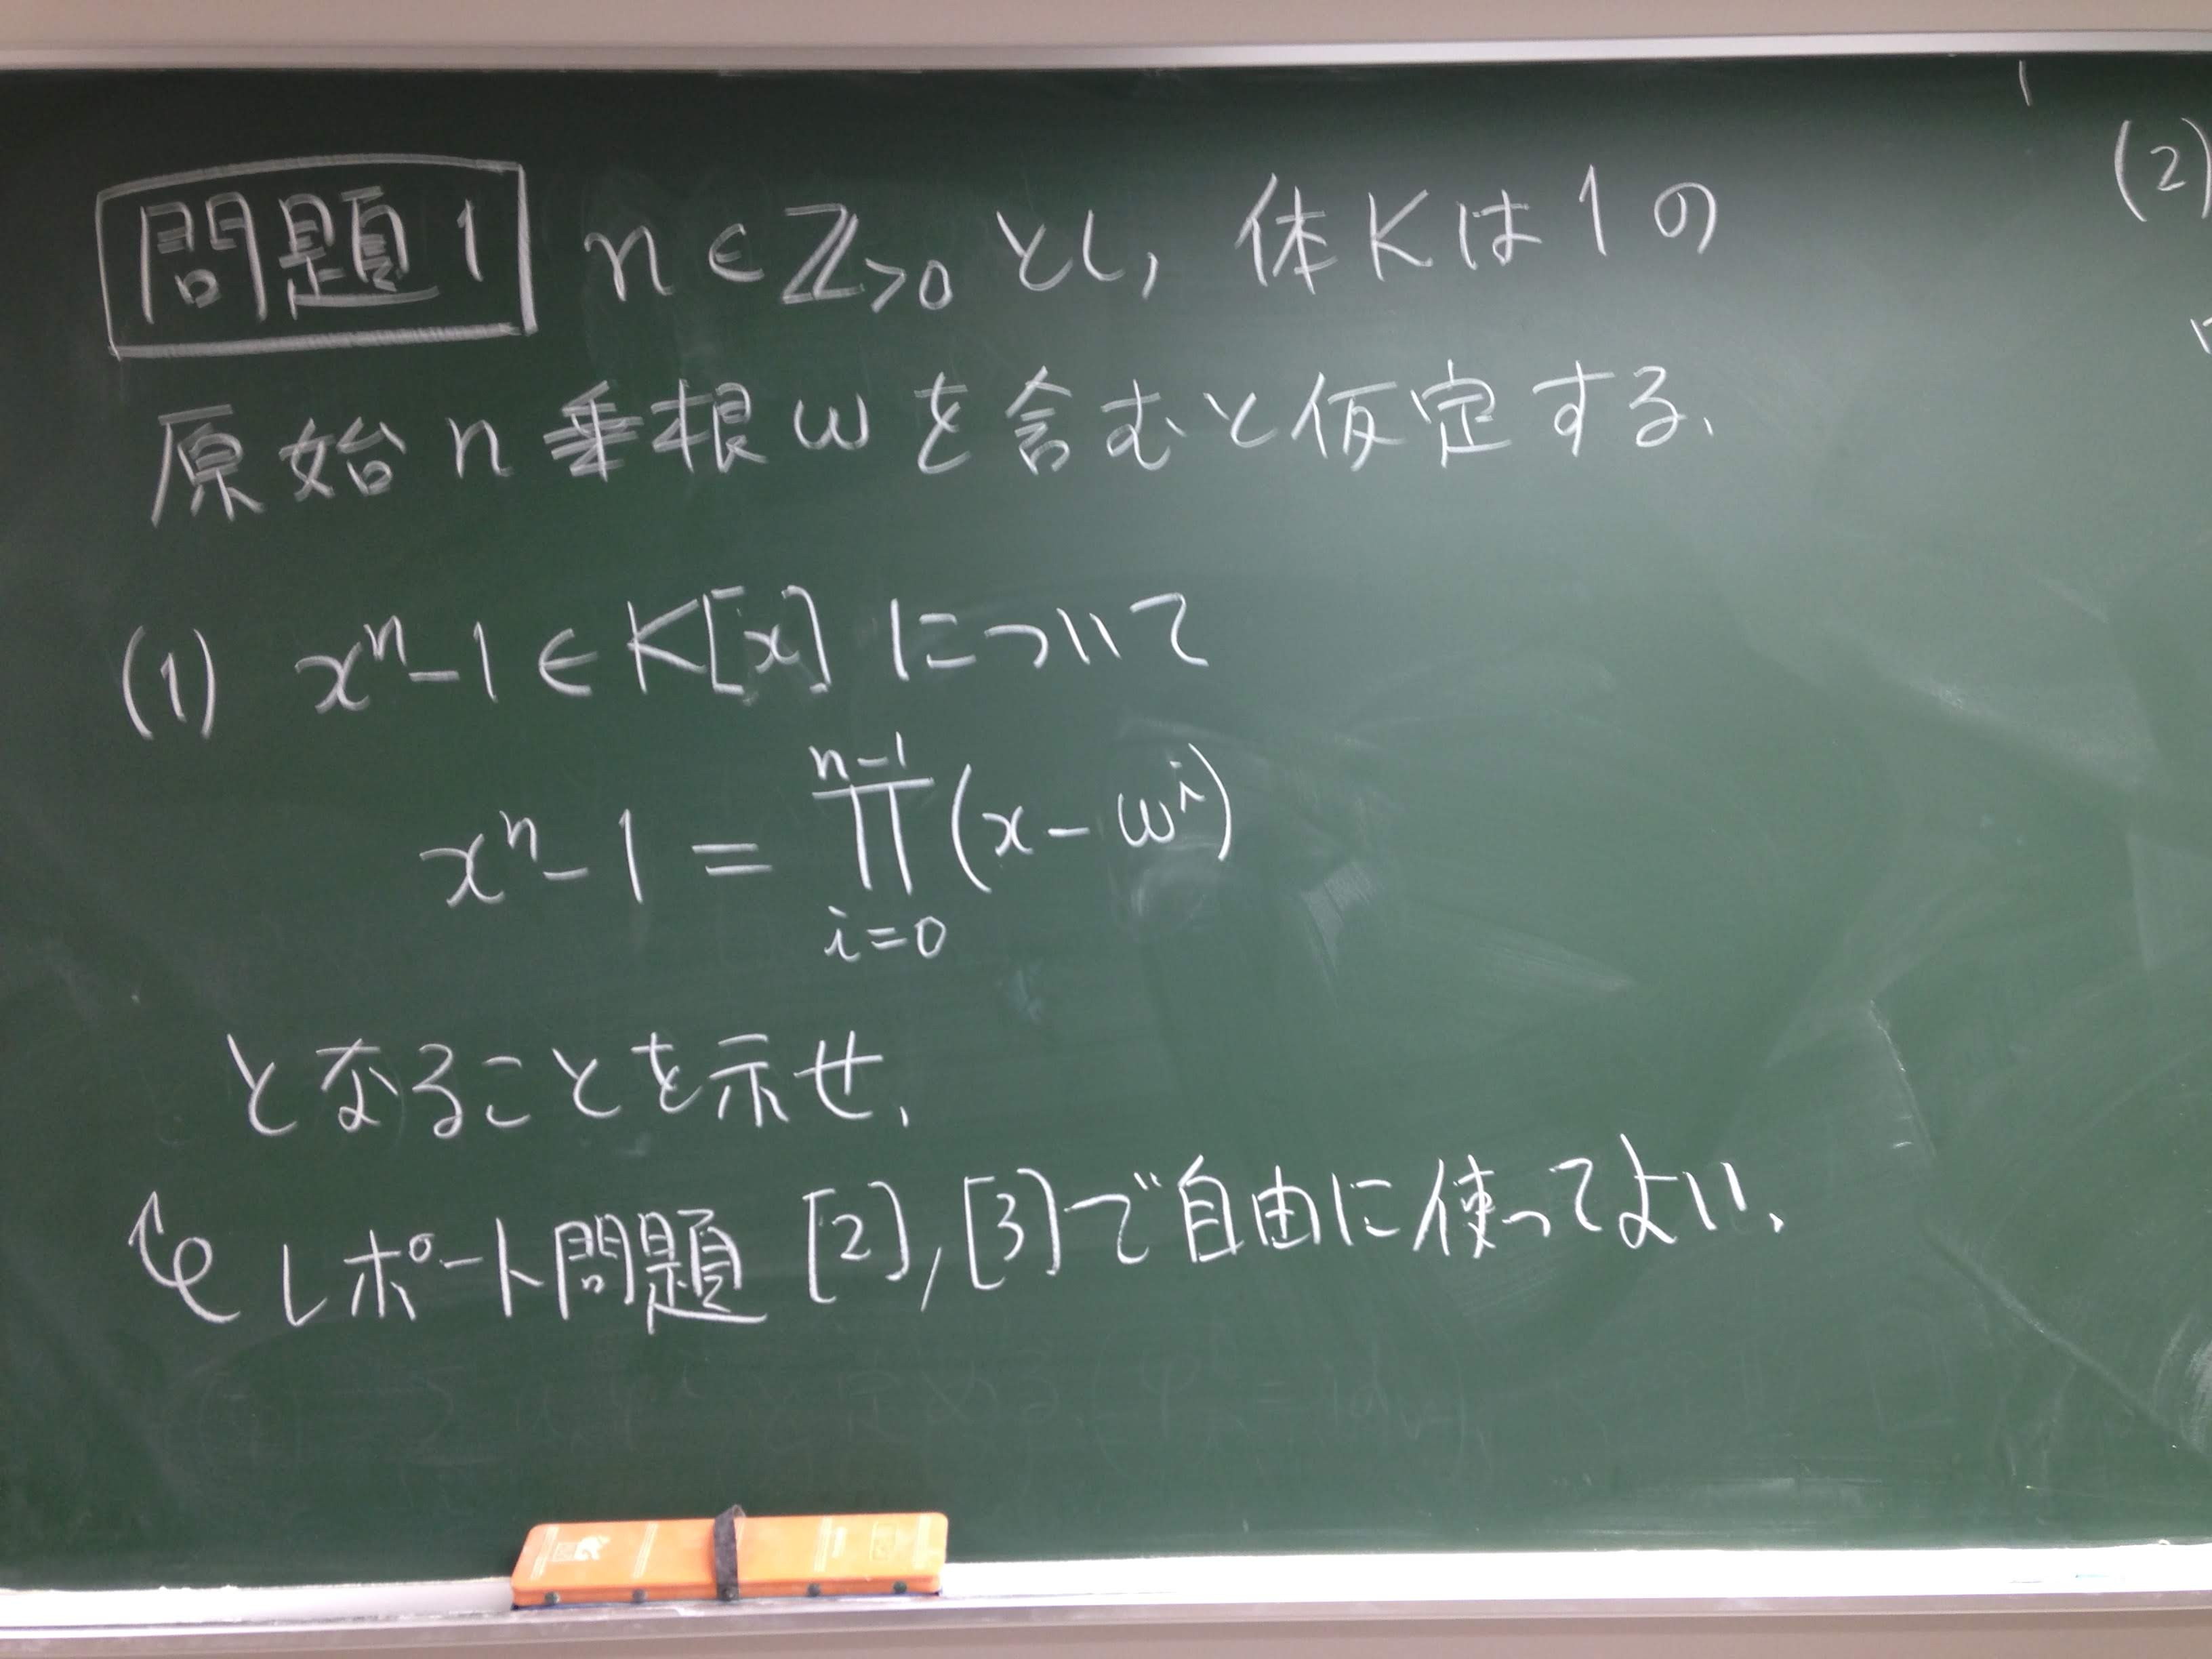 問題1 n∈ℤ>0 とし, 体Kは1の
原始n乗根ωを含むと仮定する.
(1) xⁿ-1∈K[x] について
xⁿ-1 = ∏_{i=0}^{n-1} (x-ωⁱ)
となることを示せ.
レポート問題 [2], [3]で自由に使ってよい.
(2)